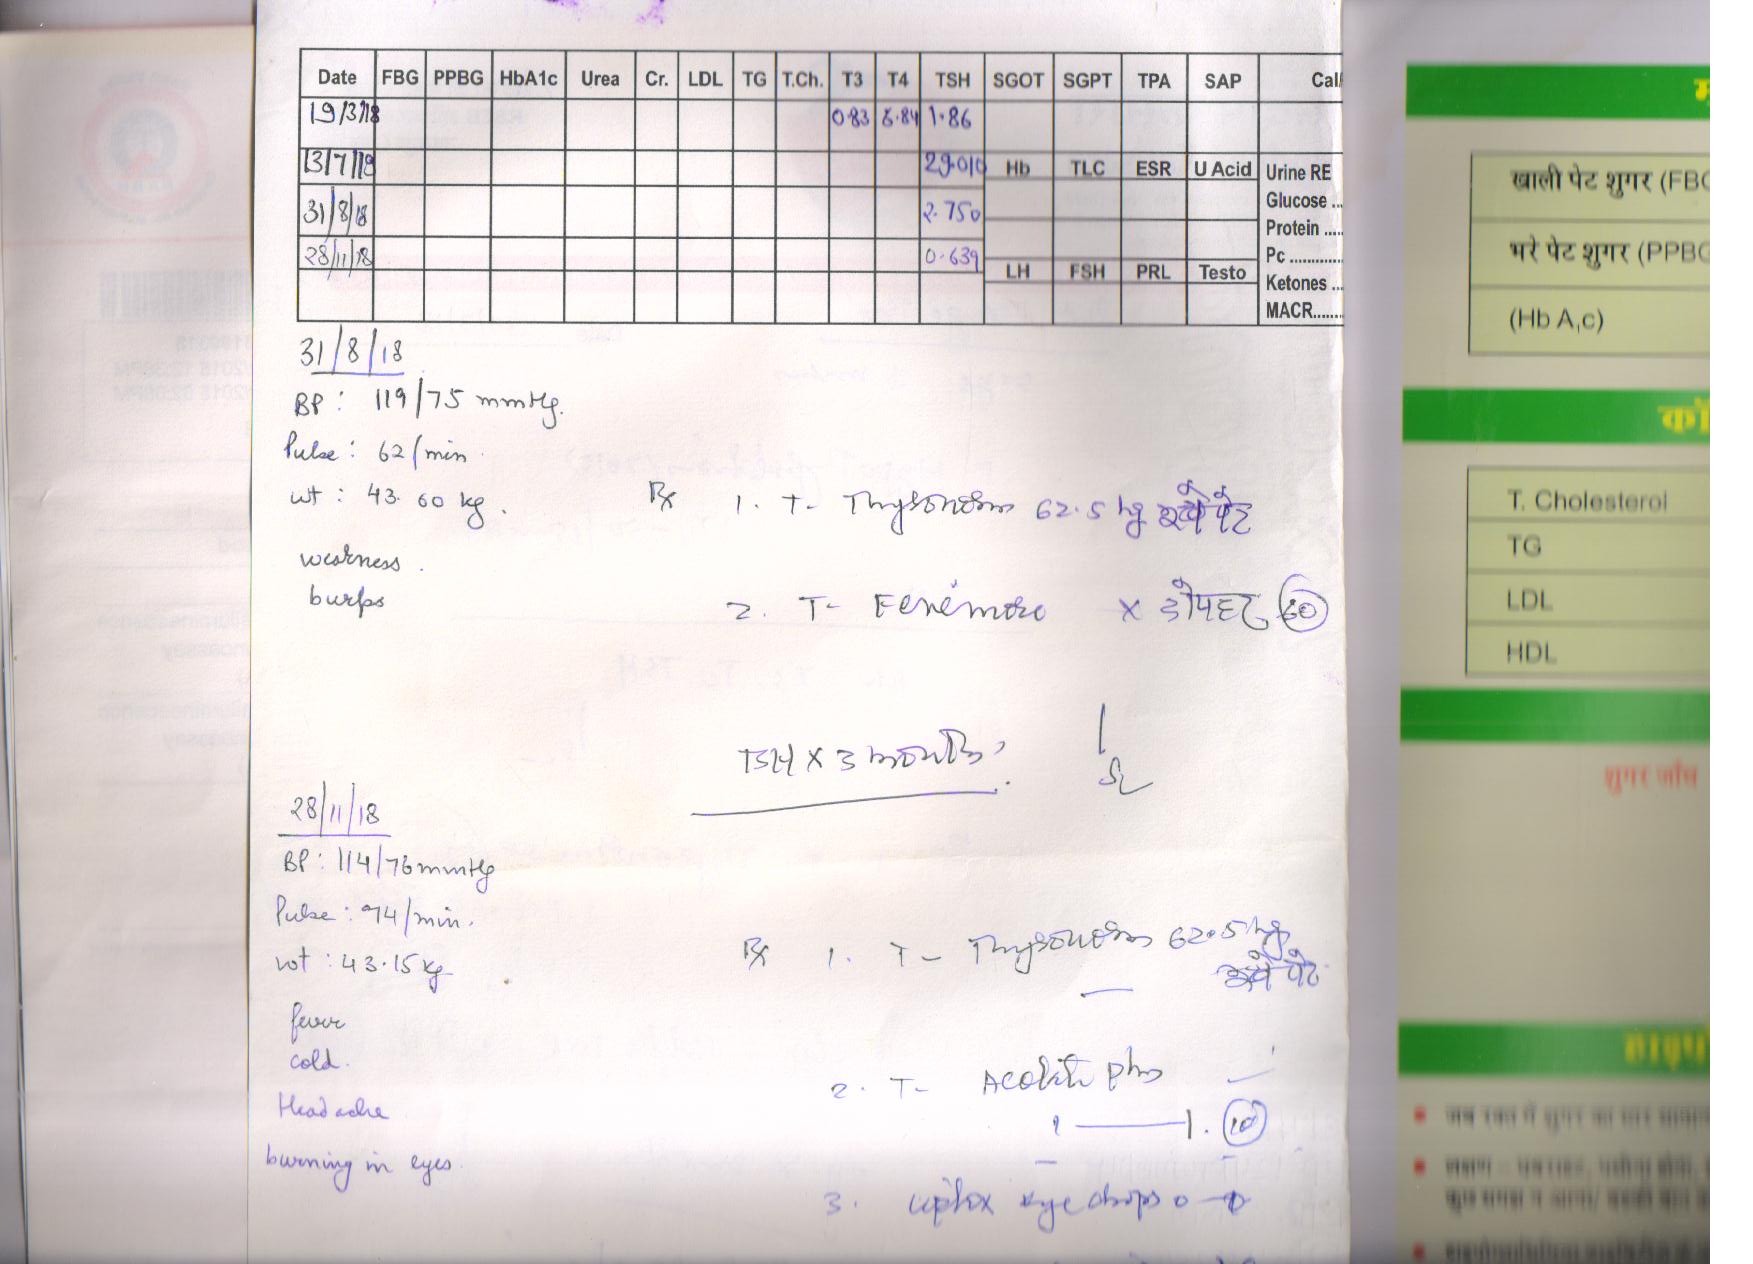 Date FBG PPBG HbA1c Urea Cr. LDL TG T.Ch. T3 T4 TSH SGOT SGPT TPA SAP Call
19/3/18 0.83 1.86
13/7/18 29.010 Hb TLC ESR U Acid Urine RE
Glucose ...
31/8/18 2.750
Protein .....
28/11/18 0.639
Pc ............
LH FSH PRL Testo
Ketones ...
MACR.......
31/8/18
BP : 119/75 mmHg.
Pulse : 62/min
wt : 43.60 kg.
Rx 1. T- Thyronorm 62.5 पेट
weakness.
burps
2. T- x 30
TSH x 3 months
28/11/18
BP : 114/76 mmHg
Pulse : 94/min.
wt : 43.15 kg
Rx 1. T- Thyronorm 62.5
पेट
fever
cold.
2. T-
Headache
1 — 1. 10
burning in eyes.
3. eye drops
खाली पेट शुगर (FBG
भरे पेट शुगर (PPBG
(Hb A,c)
T. Cholesterol
TG
LDL
HDL
शुगर जाँच